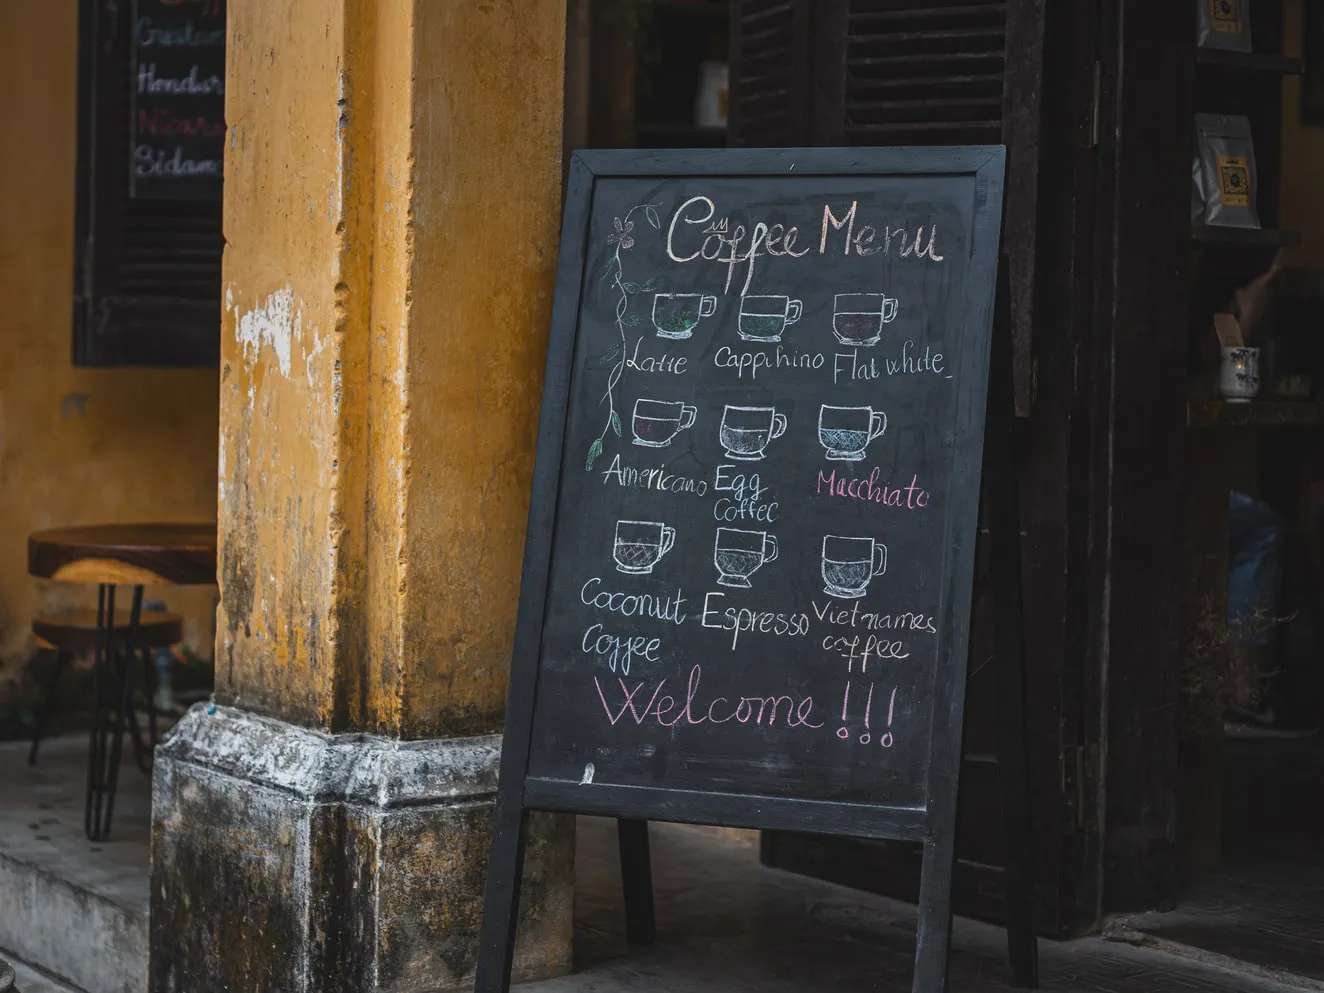 Hondur
Nicara
Sidam
Coffee Menu
Latte Cappuhino Flat white
Americano Egg Coffee Macchiato
Coconut Coffee Espresso Vietnames coffee
Welcome !!!